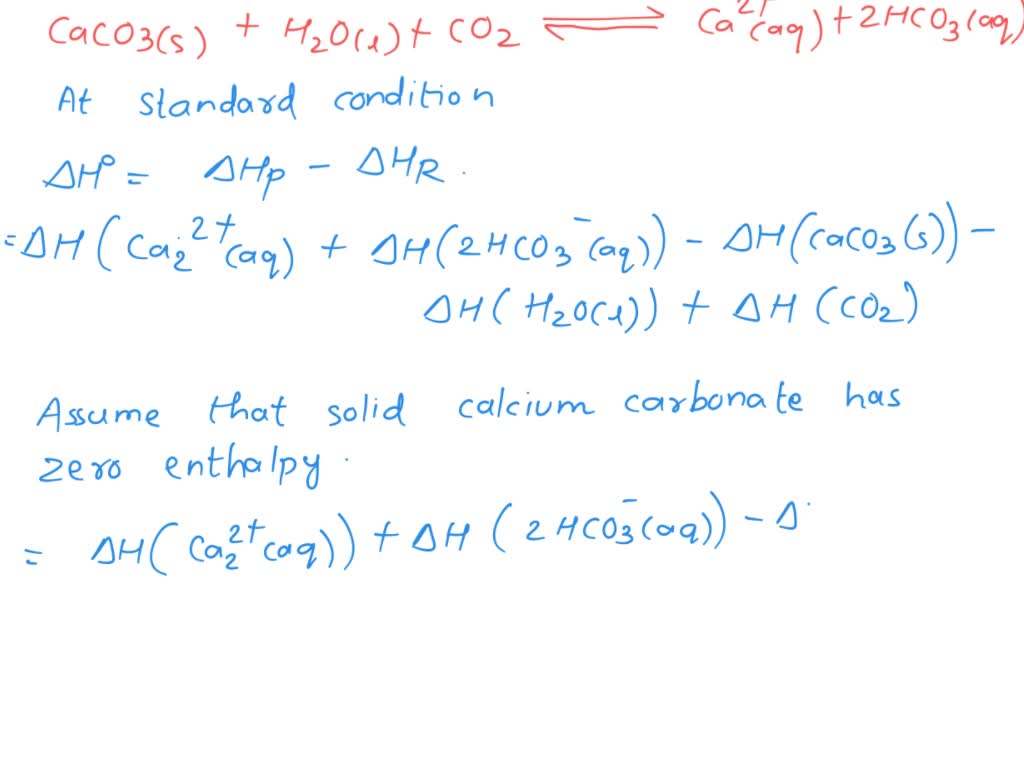 CaCO3(s) + H2O(l) + CO2 ⇌ Ca2+(aq) + 2HCO3(aq)
At standard condition
ΔH° = ΔHp - ΔHR.
= ΔH(Ca2 2+(aq) + ΔH(2HCO3-(aq)) - ΔH(CaCO3(s)) -
ΔH(H2O(l)) + ΔH(CO2)
Assume that solid calcium carbonate has
zero enthalpy.
= ΔH(Ca2 2+(aq)) + ΔH(2HCO3-(aq)) - Δ